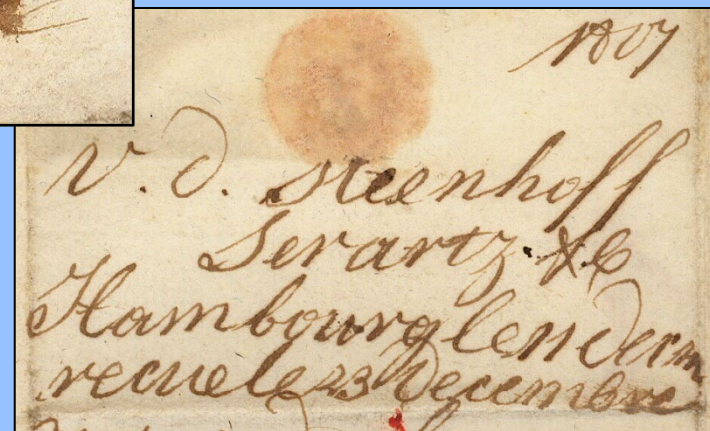 1807
V. d. Steenhoff
Serartz & C
Hambourg le 11 decm
recue le 23 Decembre